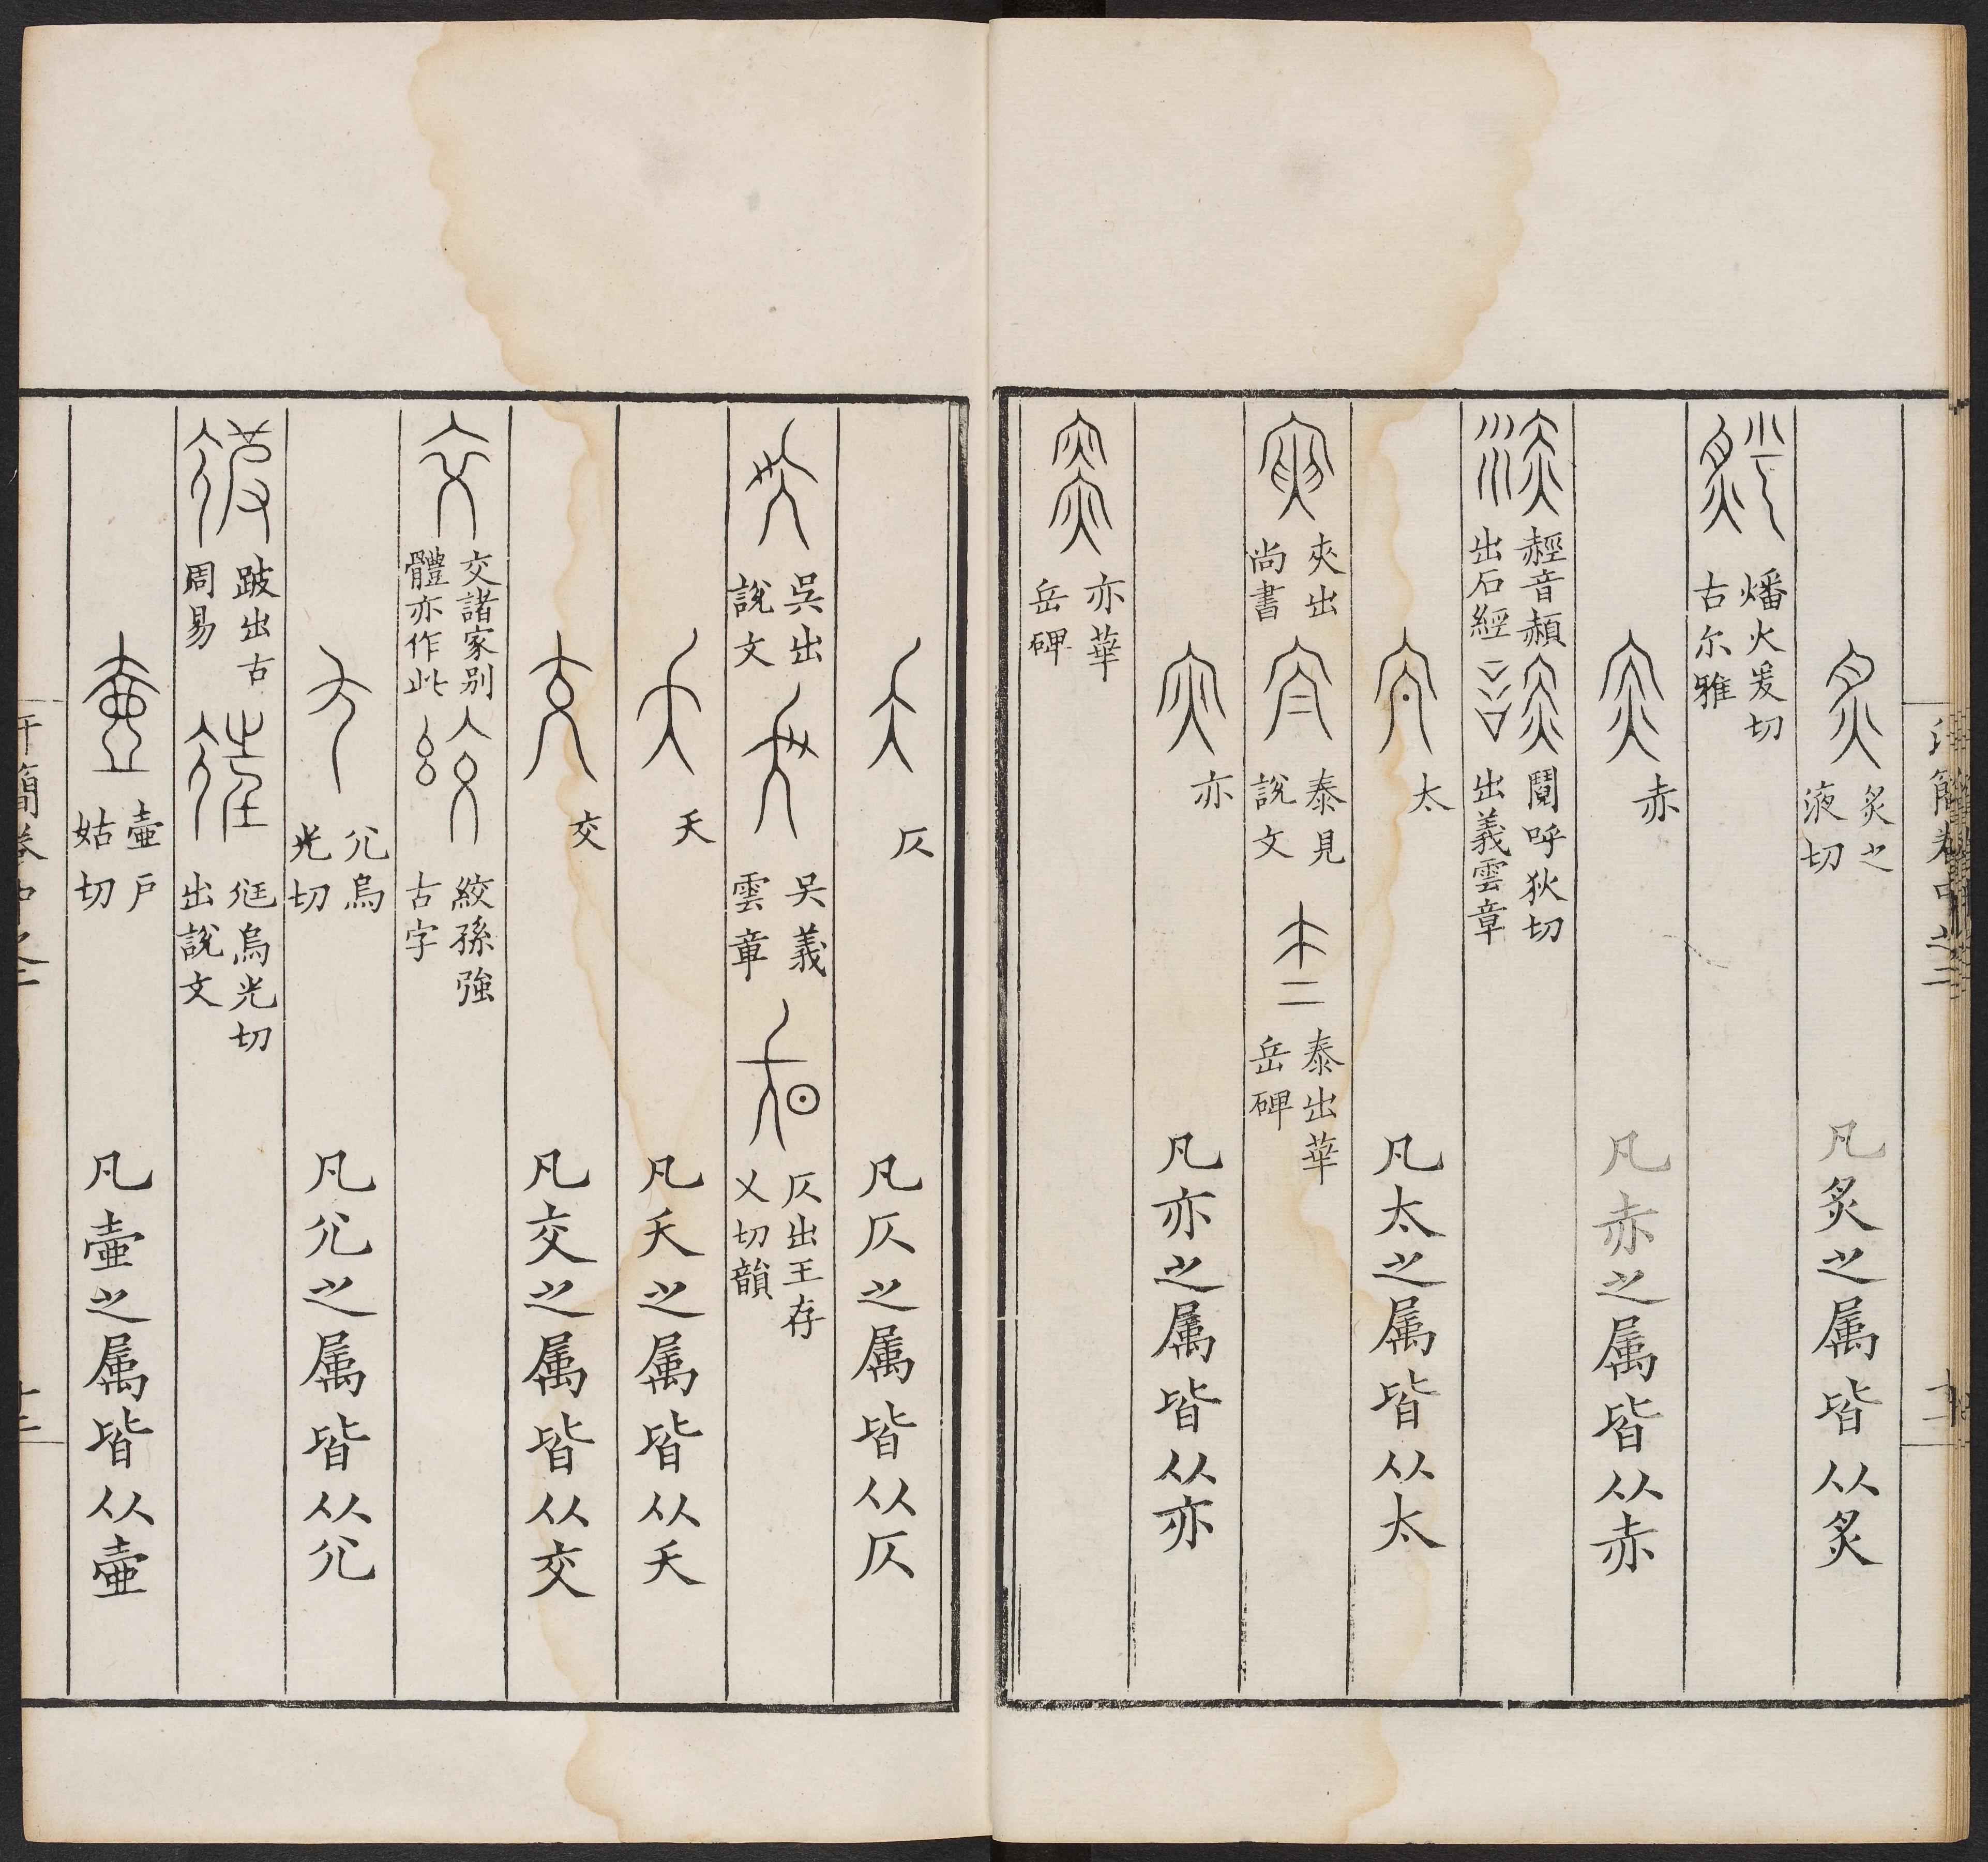 炙之
液切
凡炙之属皆从炙
燔火爰切
古尔雅
赤
凡赤之属皆从赤
赨音頳
出石經
鬩呼狄切
出義雲章
太
凡太之属皆从太
夾出
尚書
泰見
說文
泰出華
岳碑
亦
凡亦之属皆从亦
亦華
岳碑
仄
凡仄之属皆从仄
吳出
說文
吴義
雲章
仄出王存
乂切韻
夭
凡夭之属皆从夭
交
凡交之属皆从交
交諸家别
體亦作此
絞孫強
古字
尣烏
光切
凡尣之属皆从尣
跛出古
周易
尪烏光切
出說文
壷戶
姑切
凡壷之属皆从壷